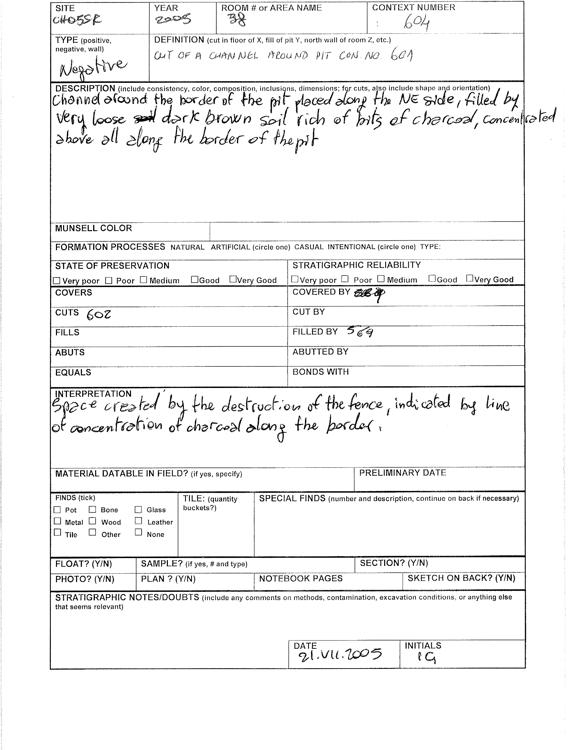 SITE YEAR ROOM # or AREA NAME CONTEXT NUMBER
CH05SR 2005 38 604
TYPE (positive, negative, wall) DEFINITION (cut in floor of X, fill of pit Y, north wall of room Z, etc.)
Negative CUT OF A CHANNEL AROUND PIT CON. NO. 601
DESCRIPTION (include consistency, color, composition, inclusions, dimensions; for cuts, also include shape and orientation)
Channel around the border of the pit placed along the NE side, filled by
very loose dark brown soil rich of bits of charcoal, concentrated
above all along the border of the pit
MUNSELL COLOR
FORMATION PROCESSES NATURAL ARTIFICIAL (circle one) CASUAL INTENTIONAL (circle one) TYPE:
STATE OF PRESERVATION STRATIGRAPHIC RELIABILITY
Very poor Poor Medium Good Very Good Very poor Poor Medium Good Very Good
COVERS COVERED BY
CUTS 602 CUT BY
FILLS FILLED BY 569
ABUTS ABUTTED BY
EQUALS BONDS WITH
INTERPRETATION
Space created by the destruction of the fence, indicated by line
of concentration of charcoal along the border.
MATERIAL DATABLE IN FIELD? (if yes, specify) PRELIMINARY DATE
FINDS (tick) TILE: (quantity buckets?) SPECIAL FINDS (number and description, continue on back if necessary)
Pot Bone Glass
Metal Wood Leather
Tile Other None
FLOAT? (Y/N) SAMPLE? (if yes, # and type) SECTION? (Y/N)
PHOTO? (Y/N) PLAN ? (Y/N) NOTEBOOK PAGES SKETCH ON BACK? (Y/N)
STRATIGRAPHIC NOTES/DOUBTS (include any comments on methods, contamination, excavation conditions, or anything else
that seems relevant)
DATE INITIALS
21.VII.2005 IG